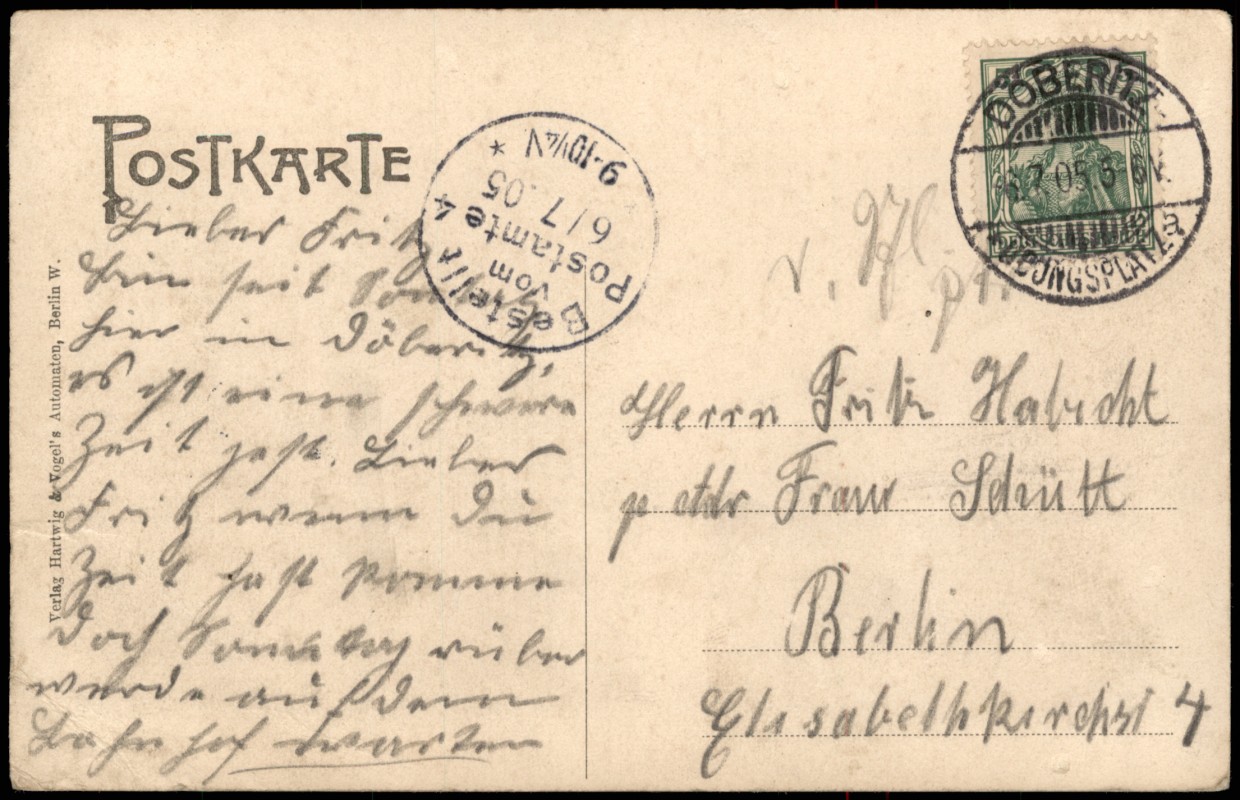 POSTKARTE
Lieber Fritz
bin seit Sonntag
hier in Döberitz,
es ist eine schwere
Zeit jetzt. Lieber
Fritz wenn Du
Zeit hast komme
doch Sonntag rüber
werde auf dem
Bahnhof warten
Verlag Hartwig & Vogel's Automaten, Berlin W.
Bestellt
vom
Postamte 4
6/7.05
9-10½N
*
DÖBERITZ
6.7.05.5-6N.
ÜBUNGSPLATZ
a
v.
Herrn Fritz Habicht
p adr Frau Schütt
Berlin
Elisabethkirchst 4